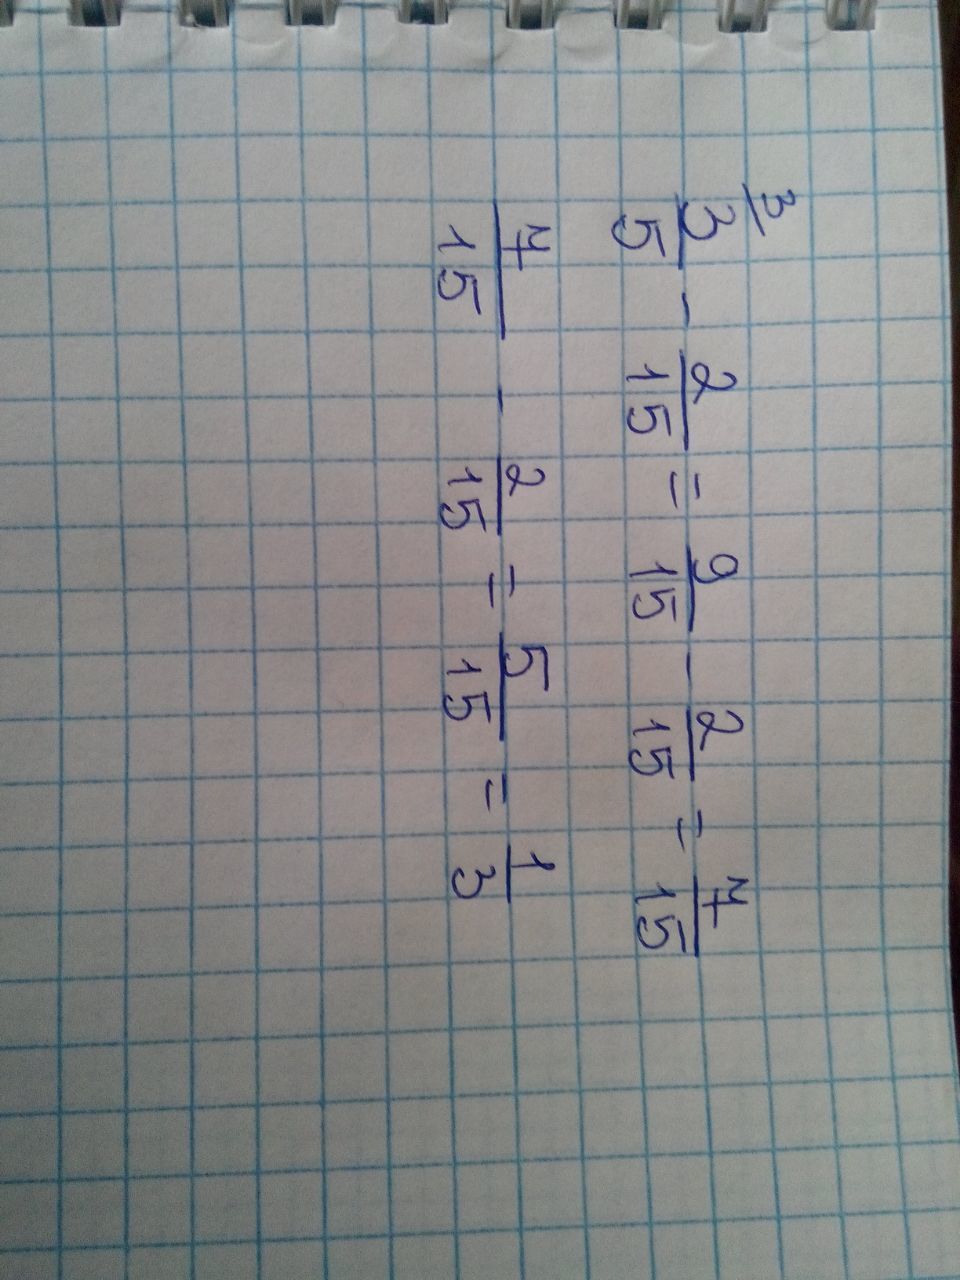 3⟋ 3/5 - 2/15 = 9/15 - 2/15 = 7/15
7/15 - 2/15 = 5/15 = 1/3